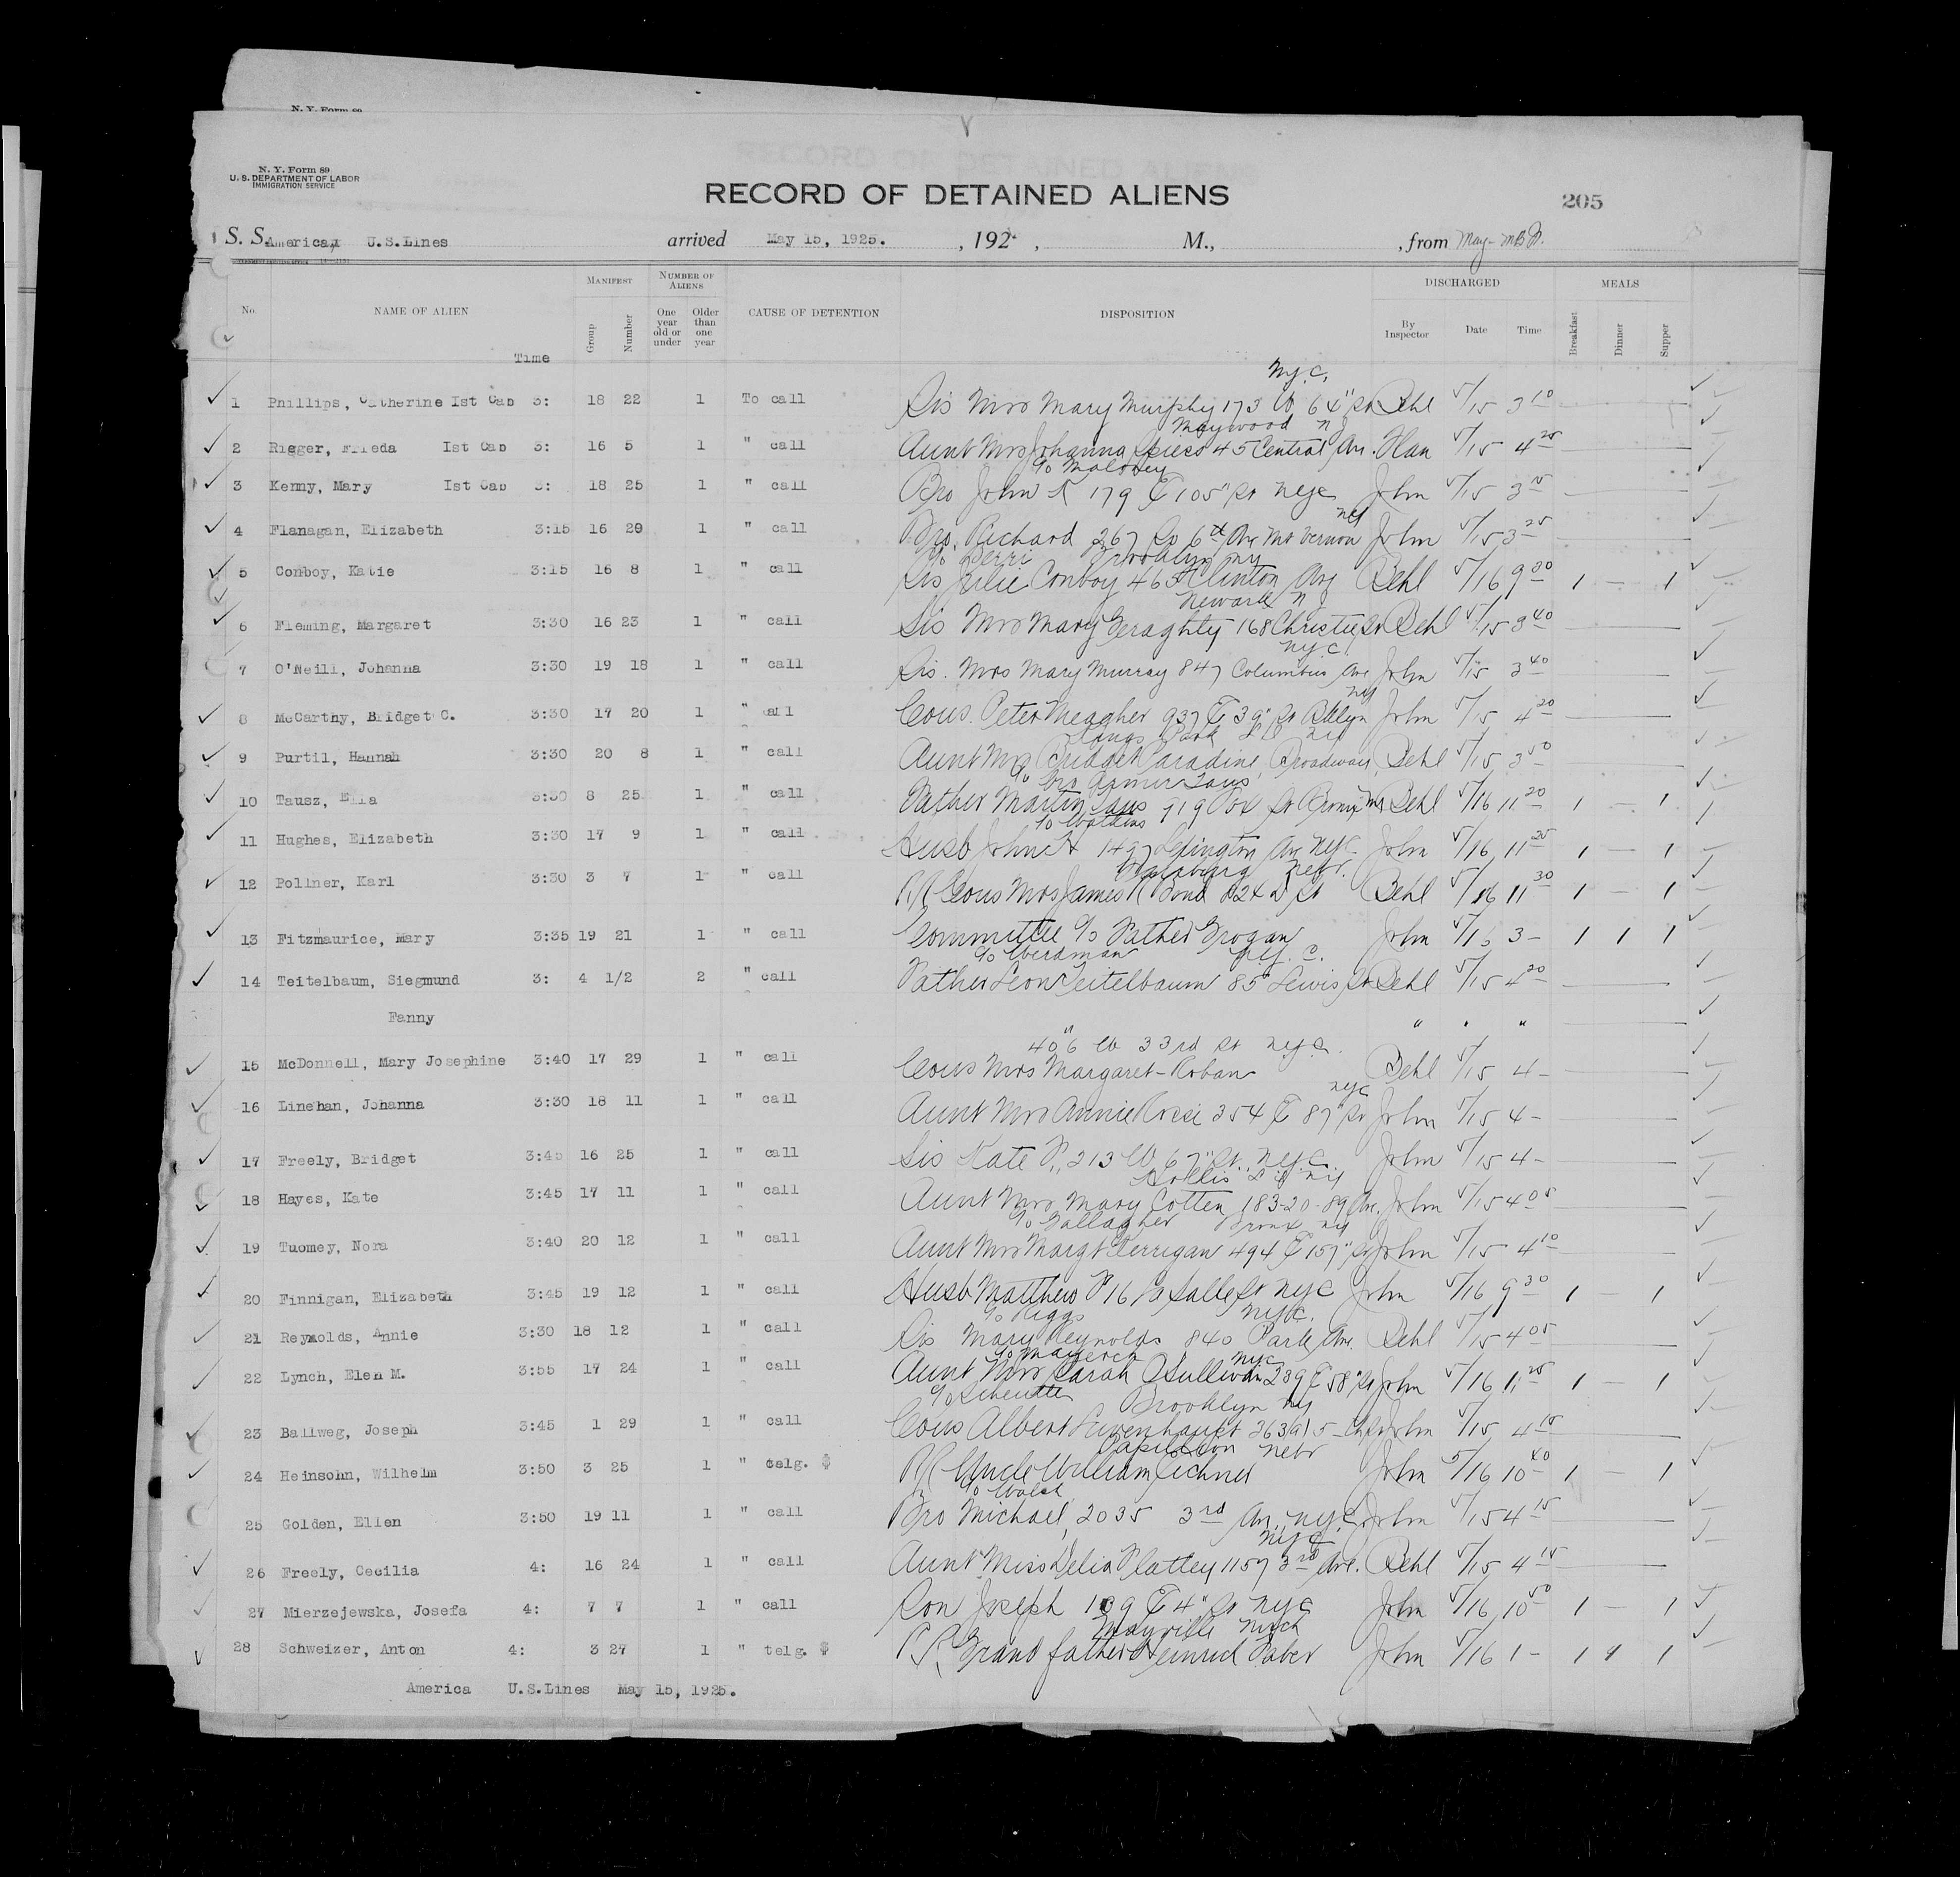 N. Y. Form 89
N. Y. Form 89
U. S. DEPARTMENT OF LABOR
IMMIGRATION SERVICE
RECORD OF DETAINED ALIENS
205
S. S. America U.S.Lines arrived May 15, 1925. , 192 , M., , from May-
No. NAME OF ALIEN Time MANIFEST Group Number NUMBER OF ALIENS One year old or under Older than one year CAUSE OF DETENTION DISPOSITION DISCHARGED By Inspector Date Time MEALS Breakfast Dinner Supper
N.Y.C.
1 Phillips, Catherine Ist Cab 3: 18 22 1 To call Sis Mrs Mary Murphy 173 W 64" St Behl 5/15 3 10
Maywood NJ
2 Rieger, Frieda Ist Cab 3: 16 5 1 " call Aunt Mrs Johanna Spiess 45 Central Av. Han 5/15 4 25
c/o Maloney
3 Kenny, Mary Ist Cab 3: 18 25 1 " call Bro John K 179 E 105" St NYC John 5/15 3 15
NY
4 Flanagan, Elizabeth 3:15 16 29 1 " call Bro. Richard 267 So 6th Av Mt Vernon John 5/15 3 25
c/o Brooklyn NY
5 Conboy, Katie 3:15 16 8 1 " call Sis Julie Conboy 465 Clinton Av Behl 5/16 9 30 1 — 1
Newark NJ
6 Fleming, Margaret 3:30 16 23 1 " call Sis Mrs Mary Geraghty 168 Christie St Behl 5/15 3 40
NYC
7 O'Neill, Johanna 3:30 19 18 1 " call Sis. Mrs Mary Murray 847 Columbus Ave John 5/15 3 40
NY
8 McCarthy, Bridget C. 3:30 17 20 1 " call Cous. Peter Meagher 937 E 39" St Bklyn John 5/15 4 20
Kings Park L I NY
9 Purtil, Hannah 3:30 20 8 1 " call Aunt Mrs Bridget Paradine, Broadway, Behl 5/15 3 50
c/o
10 Tausz, Ella 3:30 8 25 1 " call Father Martin Taus 919 Fox St Bronx NY Behl 5/16 11 20 1 — 1
c/o Watkins
11 Hughes, Elizabeth 3:30 17 9 1 " call Husb John H 1497 Lexington Av NYC John 5/16 11 25 1 — 1
Nebr.
12 Pollner, Karl 3:30 3 7 1 " call RR Cous Mrs James R Bond 824 St Behl 5/16 11 30 1 — 1
13 Fitzmaurice, Mary 3:35 19 21 1 " call Committee c/o Father Grogan John 5/16 3 — 1 1 1
c/o Werdman N.Y. C.
14 Teitelbaum, Siegmund 3: 4 1/2 2 " call Father Leon Teitelbaum 85 Lewis St Behl 5/15 4 20
Fanny " " "
406 W 33rd St N.Y.C.
15 McDonnell, Mary Josephine 3:40 17 29 1 " call Cous Mrs Margaret Hoban Behl 5/15 4 —
NYC
16 Linehan, Johanna 3:30 18 11 1 " call Aunt Mrs Annie 354 E 87" St John 5/15 4 —
17 Freely, Bridget 3:45 16 25 1 " call Sis Kate F., 213 W 67" St. NYC John 5/15 4 —
Hollis L I NY
18 Hayes, Kate 3:45 17 11 1 " call Aunt Mrs Mary Cotten 183-20-89 Av. John 5/15 4 05
c/o Gallagher Bronx NY
19 Tuomey, Nora 3:40 20 12 1 " call Aunt Mrs Margt Kerrigan 494 E 157" St John 5/15 4 10
20 Finnigan, Elizabeth 3:45 19 12 1 " call Husb Matthew F 16 La Salle St NYC John 5/16 9 30 1 — 1
c/o Riggs NYC.
21 Reynolds, Annie 3:30 18 12 1 " call Sis Mary Reynolds 840 Park Av. Behl 5/15 4 05
NYC
22 Lynch, Elen M. 3:55 17 24 1 " call Aunt Mrs Sarah O'Sullivan 239 E 58" St John 5/16 11 25 1 — 1
c/o Brooklyn NY
23 Ballweg, Joseph 3:45 1 29 1 " call Cous Albert 263 John 5/15 4 15
Papillion Nebr
24 Heinsohn, Wilhelm 3:50 3 25 1 " telg. $ RR Uncle William Eichner John 5/16 10 40 1 — 1
c/o Walsh
25 Golden, Ellen 3:50 19 11 1 " call Bro Michael, 2035 3rd Av., NYC John 5/15 4 15
NYC
26 Freely, Cecilia 4: 16 24 1 " call Aunt Miss Delia Flatley 1157 3rd Ave. Behl 5/15 4 15
27 Mierzejewska, Josefa 4: 7 7 1 " call Son Joseph 139 E 4" St NYC John 5/16 10 50 1 — 1
Mayville Mich
28 Schweizer, Anton 4: 3 27 1 " telg. $ Grandfather Heinrich Faber John 5/16 1 — 1 1 1
America U.S.Lines May 15, 1925.